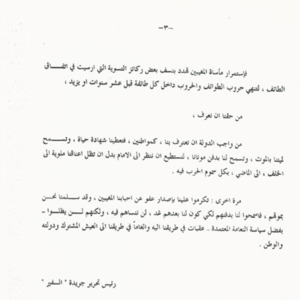 -٣-
فإستمرار مأساة المغيبين قددد بنسف بعض ركائز التسوية التي ارسيت في اتفـــاق
الطائف ، لتنهي حروب الطوائف والحروب داخل كل طائفة قبل عشر سنوات او يزيد ،
من حقنا ان نعرف ،
من واجب الدولة ان تعترف بنا ، كمواطنين ، فتعطينا شهادة حياة ، وتســـمح
لميتنا بالموت ، وتسمح لنا بدفن موتانا ، لنستطيع ان ننظر الى الامام بدل ان تظل اعناقنا ملوية الى
الخلف ، الى الماضي ، بكل سموم الحرب فيه .
مرة اخرى : تكرموا علينا بإصدار عفو عن احبابنا المغيبين ، وقد ســـلمنا نحـــن
بموتهم ، فاسمحوا لنا بدفنهم لكي كون لنا بعدهم غد ، لن ننساهم فيه ، ولكنهم لـــن يظلـــوا -
بفضل سياسة النعامة المعتمدة . عقبات في طريقنا اليه والغاماً في طريقنا الى العيش المشترك ودولته
والوطن .
رئيس تحرير جريدة " السفير "